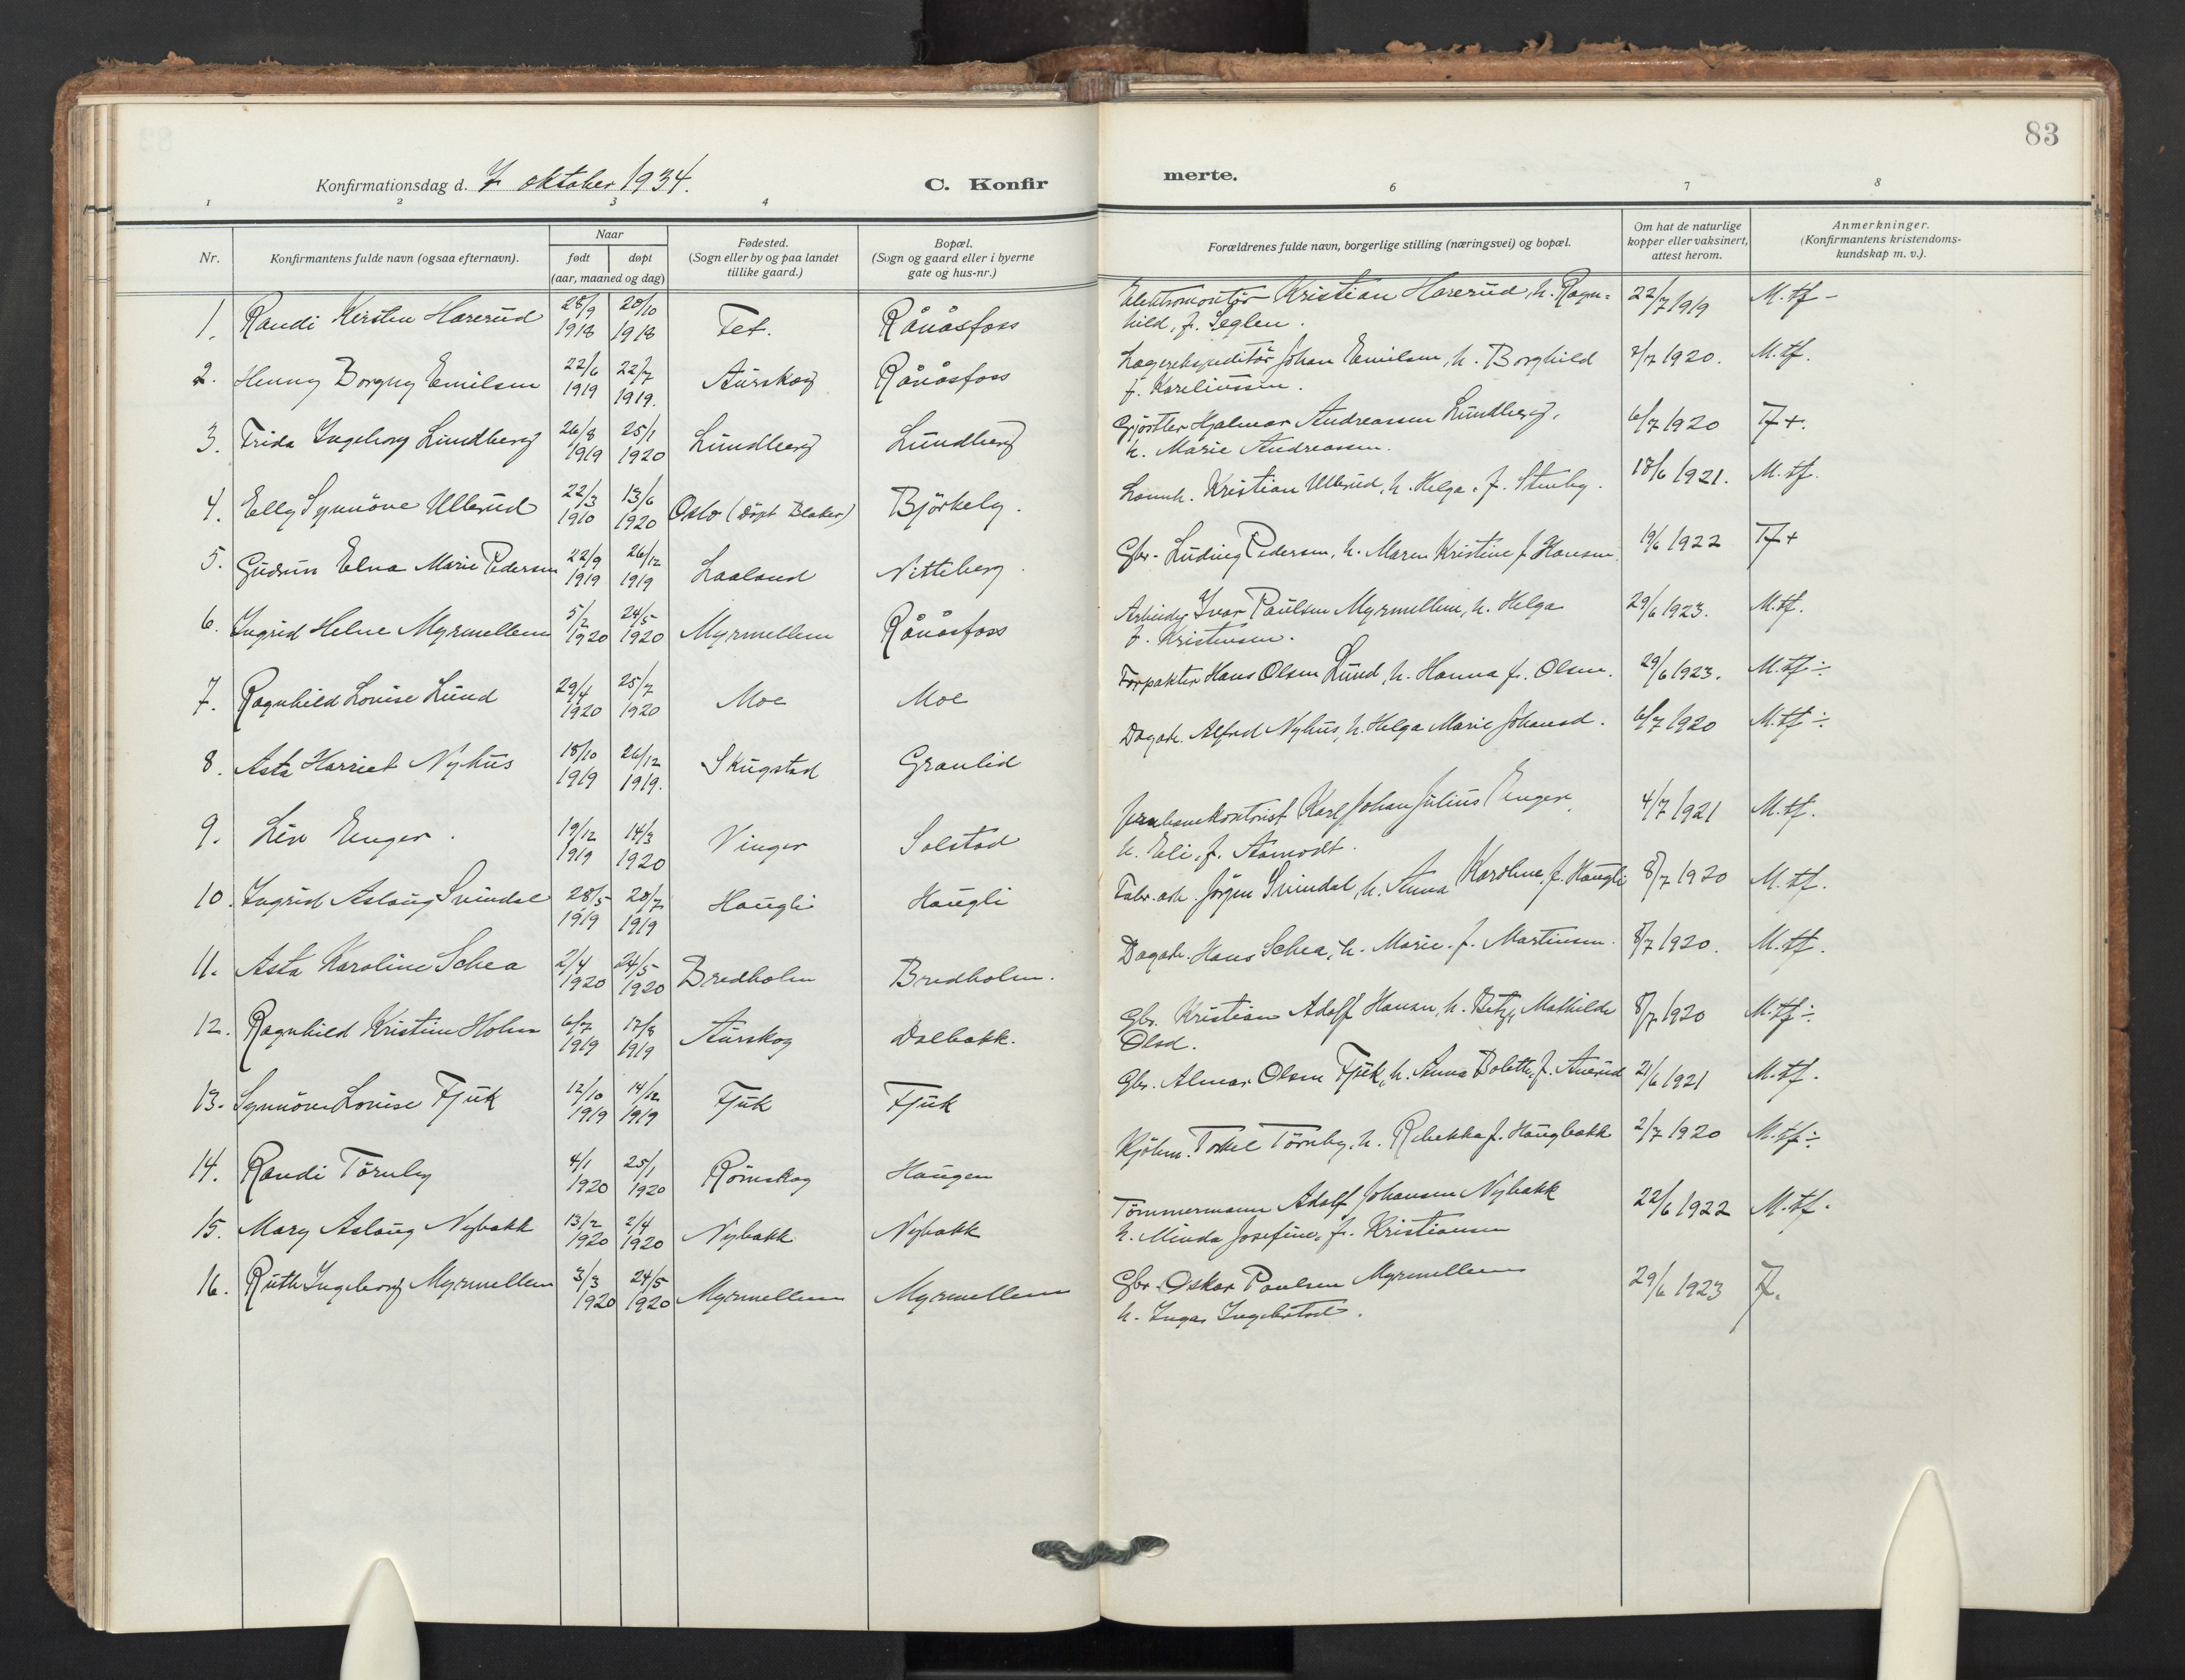 83
Konfirmationsdag d. 7 oktober 1934.
C. Konfirmerte.
1 2 3 4 6 7 8
Nr.
Konfirmantens fulde navn (ogsaa efternavn).
Naar
født
døpt
(aar, maaned og dag)
Fødested.
(Sogn eller by og paa landet
tillike gaard.)
Bopæl.
(Sogn og gaard eller i byerne
gate og hus-nr.)
Forældrenes fulde navn, borgerlige stilling (næringsvei) og bopæl.
Om hat de naturlige
kopper eller vaksinert,
attest herom.
Anmerkninger.
(Konfirmantens kristendoms-
kundskap m. v.).
1. Randi Kirsten Harerud 28/9 1918 20/10 1918 Fet. Rånåsfoss Elektromontör Kristian Harerud, h. Ragn=
hild, f. Seglen. 22/7 1919 M.tf -
2. Henny Borgny Emilsen 22/6 1919 22/7 1919. Aurskog Rånåsfoss Lagerekspeditör Johan Emilsen, h. Borghild
f. Kareliussen. 7/7 1920. M.tf.
3. Frida Ingeborg Lundberg 26/8 1919 25/1 1920 Lundberg Lundberg Gjörtler Hjalmar Andreassen Lundberg,
h. Marie Andreassen. 6/7 1920 Tf+.
4. Elly Synnöve Ullerud 22/3 1910 13/6 1920 Oslo (döpt Blaker) Björkely. Kristian Ullerud, h. Helga, f. Stenby. 18/6 1921. M.tf.
5. Gudrun Elna Marie Pedersen 22/9 1919 26/12 1919 Laaland Nitteberg. Gbr. Ludvig Pedersen, h. Maren Kristine f. Hansen. 19/6 1922 Tf+
6. Ingrid Helene Myrmellem 5/2 1920 24/5 1920 Myrmellem Rånåsfoss Arbeidsg Ivar Paulsen Myrmellem, h. Helga
f. Kristensen. 29/6 1923. M.tf.
7. Ragnhild Lovise Lund 29/4 1920 25/7 1920 Moe Moe Forpakter Hans Olsen Lund, h. Hanna f. Olsen. 29/6 1923. M.tf÷
8. Asta Harriet Nyhus 18/10 1919 26/12 1919. Skugstad Granlid Dagarb. Alfred Nyhus, h. Helga Marie Johansd. 6/7 1920 M.tf÷
9. Liv Enger. 19/12 1919 14/3 1920 Vinger Solstad Jernbanekontorist Karl Johan Julius Enger,
h. Eli, f. Aamodt. 4/7 1921 M.tf.
10. Ingrid Aslaug Svindal 28/5 1919 20/7 1919 Haugli Haugli Fabr. arb. Jörgen Svindal, h. Anna Karoline, f. Haugli 8/7 1920 M.tf.
11. Asta Karoline Schea 2/4 1920 24/5 1920 Bredholm Bredholm. Dagarb. Hans Schea, h. Marie. f. Martinsen. 8/7 1920. M.tf.
12. Ragnhild Kristine Holm 6/7 1919 17/8 1919 Aurskog Dalbakk. Gbr. Kristian Adolf Hansen, h. Betzy Mathilde
Olsd. 8/7 1920 M.tf÷
13. Synnöve Lovise Fjuk 12/10 1919 14/12 1919 Fjuk Fjuk Gbr. Almar Olsen Fjuk, h. Anna Bolette, f. Auerud 21/6 1921 M.tf.
14. Randi Törnby 4/1 1920 25/1 1920 Römskog Haugen Kjöbm. Torkel Törnby, h. Rebekka f. Haugbakk 2/7 1920 M.tf÷
15. Mary Aslaug Nybakk 13/2 1920 2/4 1920 Nybakk Nybakk Tömmermann Adolf Johansen Nybakk
h. Minda Josefine, f. Kristiansen 22/6 1922 M.tf.
16. Ruth Ingeborg Myrmellem 3/3 1920 24/5 1920 Myrmellem Myrmellem Gbr. Oskar Paulsen Myrmellem
h. Inga, Ingebretsd. 29/6 1923 Tf.